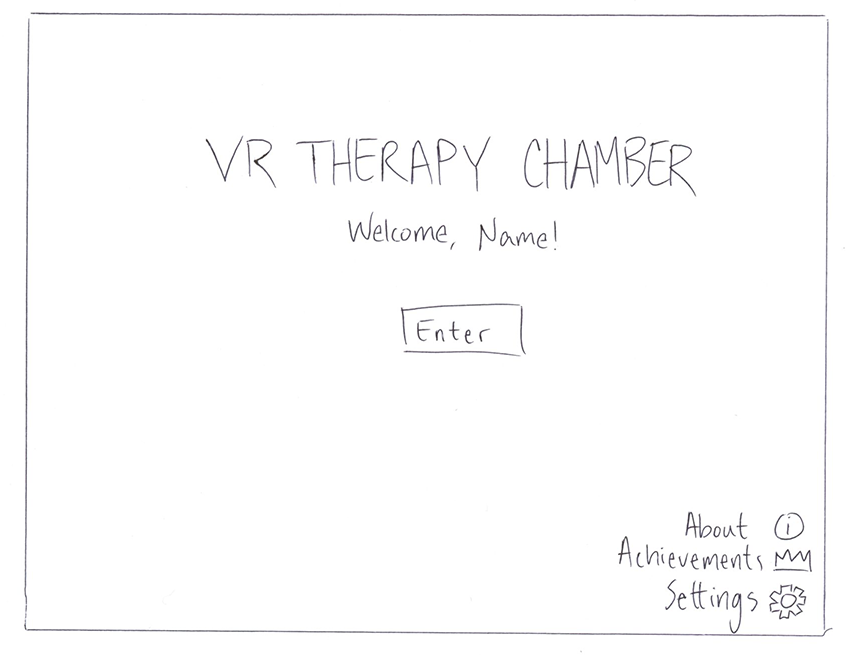 VR THERAPY CHAMBER
Welcome, Name!
Enter
About i
Achievements
Settings